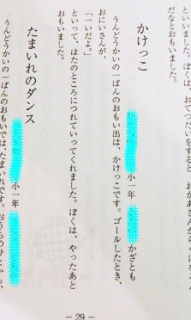 だなとおもいました。
かけっこ
小一年　かざとも
うんどうかいの一ばんのおもい出は、かけっこです。ゴールしたとき、
おにいさんが、
「一いだよ。」
といって、はたのところにつれていってくれました。ぼくは、やったあと
おもいました。
たまいれのダンス
小一年
うんどうかいの一ばんのおもいでは、たまいれです。
― 29 ―